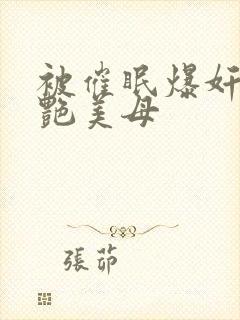 被催眠爆奸
艷美母
張茆